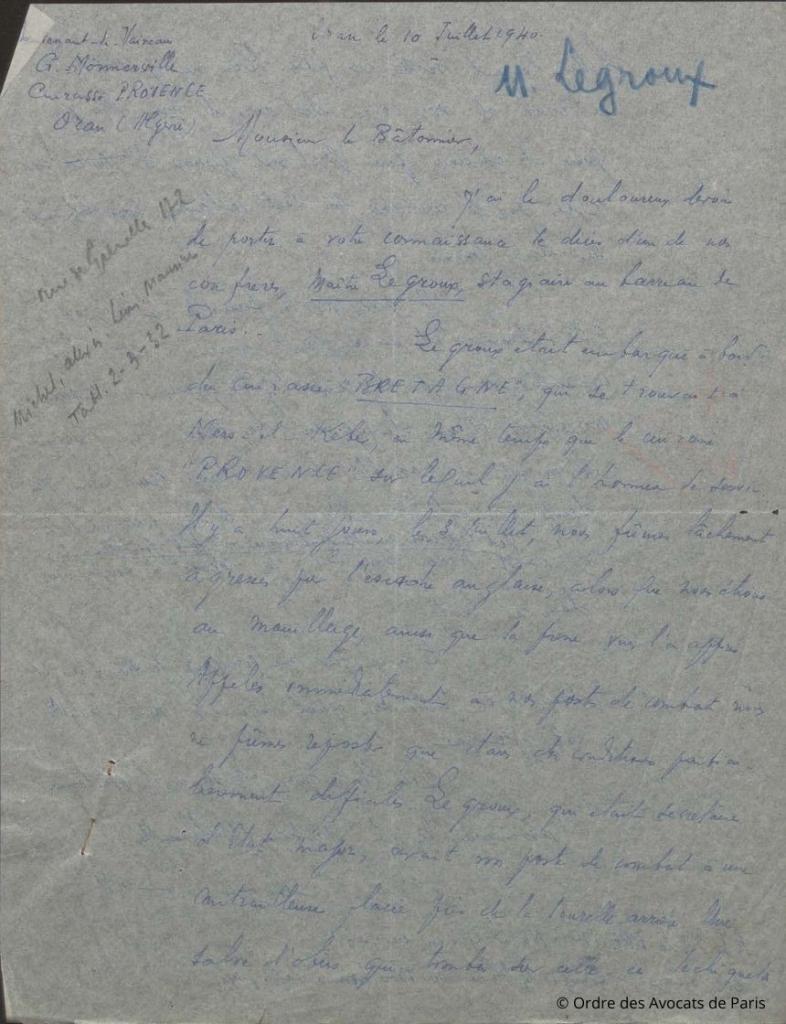 Oran le 10 Juillet 1940.
G. Monnerville
Cuirassé PROVENCE
Oran (Algérie)
M. Legroux
Monsieur le Bâtonnier,
J'ai le douloureux devoir
de porter à votre connaissance le décès d'un de nos
confrères, Maître Legroux, stagiaire au barreau de
Paris.
Legroux était embarqué à bord
du cuirassé "BRETAGNE", qui se trouvait à
Mers-el-Kébir, en même temps que le cuirassé
"PROVENCE" sur lequel j'ai l'honneur de servir.
Il y a huit jours, le 3 Juillet, nous fûmes lâchement
agressés par l'escadre anglaise, alors que nous étions
au mouillage, ainsi que la presse vous l'a appris
Appelés immédiatement à nos postes de combat nous
ne pûmes riposter que dans des conditions particu-
lièrement difficiles. Legroux, qui était secrétaire
d'Etat major, avait son poste de combat à une
mitrailleuse placée près de la tourelle arrière. Une
salve d'obus qui tomba sur celle-ci déchiqueta
rue de Grenelle 172
Michel, Alexis Léon, Maurice
2-3-32
© Ordre des Avocats de Paris